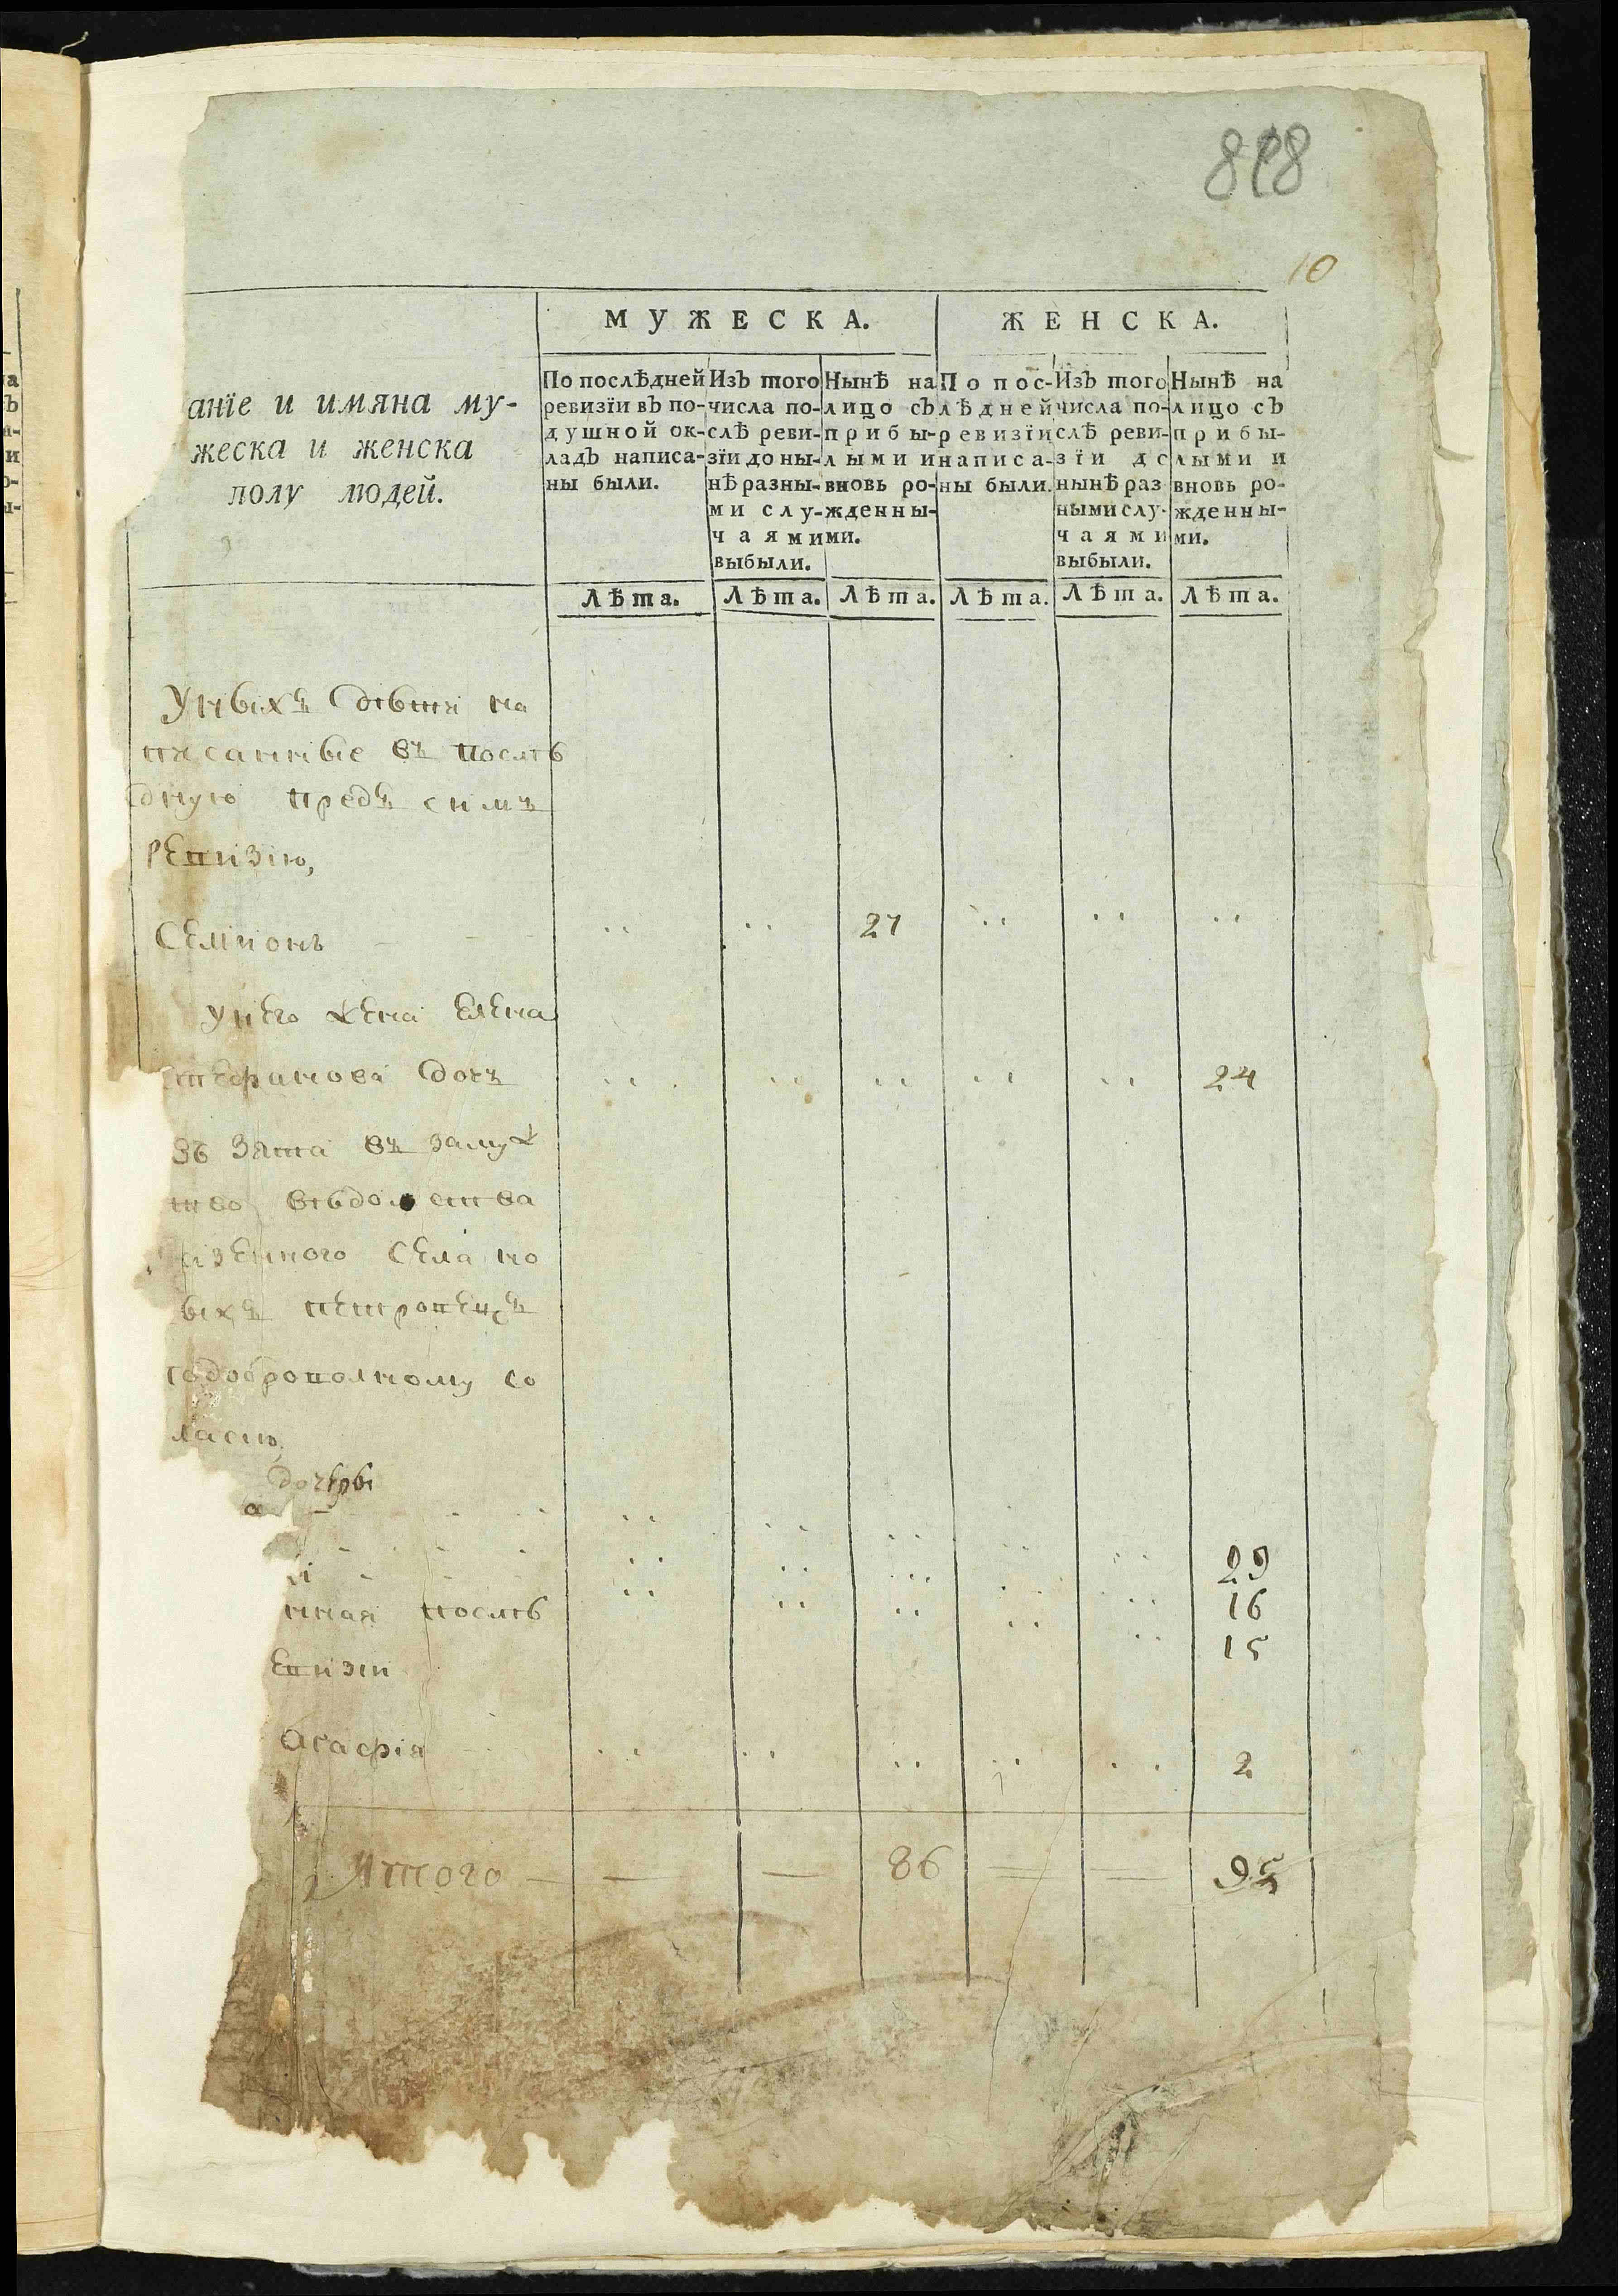 818
10
МУЖЕСКА. ЖЕНСКА.
аніе и имяна му-
жеска и женска
полу людей.
По послѣдней
ревизіи въ по-
душной ок-
ладъ написа-
ны были.
Изъ того
числа по-
слѣ реви-
зіи до ны-
нѣ разны-
ми слу-
чаями
выбыли.
Нынѣ на
лицо съ
прибы-
лыми и
вновь ро-
жденны-
ми.
По пос-
лѣдней
ревизіи
написа-
ны были.
Изъ того
числа по-
слѣ реви-
зіи до
нынѣ раз
ными слу-
чаями
выбыли.
Нынѣ на
лицо съ
прибы-
лыми и
вновь ро-
жденны-
ми.
Лѣта. Лѣта. Лѣта. Лѣта. Лѣта. Лѣта.
У нихъ дѣти на
писанные въ послѣ
дную предъ симъ
ревизію,
Семионъ 27
у него жена Елена
стефанова дочь 24
взята въ замуж
тво вѣдомства
азенного села но
выхъ петровецъ
подоброволному со
ласию,
дочери
а 29
16
15
нная послѣ
евизии
Агафия 2
Итого — — — 86 — — 95